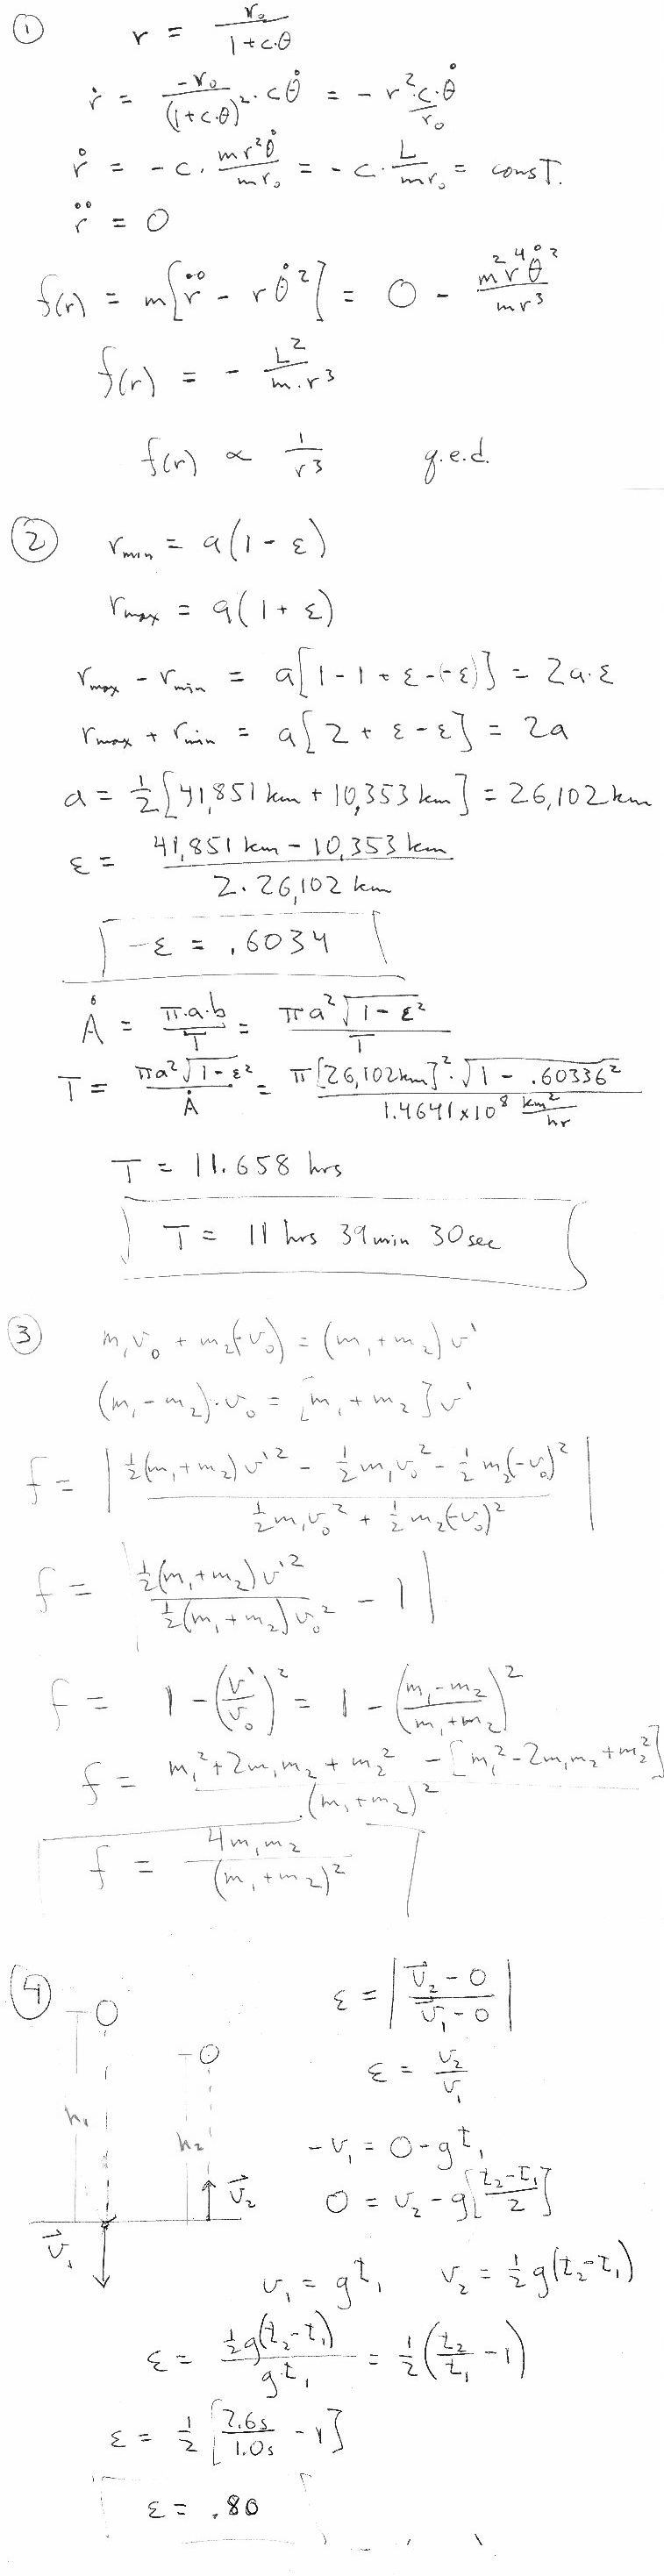 ① r = r₀ / (1 + c·θ)
ṙ = -r₀ / (1 + c·θ)² · cθ̇ = - r²·c·θ̇ / r₀
ṙ = -c · mr²θ̇ / mr₀ = -c · L / mr₀ = const.
r̈ = 0
f(r) = m[r̈ - rθ̇²] = 0 - m²r⁴θ̇² / mr³
f(r) = - L² / m·r³
f(r) ∝ 1 / r³ q.e.d.
② r_min = a(1 - ε)
r_max = a(1 + ε)
r_max - r_min = a[1 - 1 + ε - (-ε)] = 2a·ε
r_max + r_min = a[2 + ε - ε] = 2a
a = ½[41,851 km + 10,353 km] = 26,102 km
ε = (41,851 km - 10,353 km) / (2·26,102 km)
-ε = .6034
Ȧ = π·a·b / T = πa²√(1 - ε²) / T
T = πa²√(1 - ε²) / Ȧ = π[26,102 km]²·√(1 - .60336²) / 1.4641×10⁸ km²/hr
T = 11.658 hrs
T = 11 hrs 39 min 30 sec
③ m₁v₀ + m₂(-v₀) = (m₁ + m₂)v'
(m₁ - m₂)·v₀ = [m₁ + m₂]v'
f = | (½(m₁ + m₂)v'² - ½m₁v₀² - ½m₂(-v₀)²) / (½m₁v₀² + ½m₂(-v₀)²) |
f = | ½(m₁ + m₂)v'² / ½(m₁ + m₂)v₀² - 1 |
f = 1 - (v'/v₀)² = 1 - ((m₁ - m₂) / (m₁ + m₂))²
f = (m₁² + 2m₁m₂ + m₂² - [m₁² - 2m₁m₂ + m₂²]) / (m₁ + m₂)²
f = 4m₁m₂ / (m₁ + m₂)²
④ ε = | (v⃗₂ - 0) / (v⃗₁ - 0) |
ε = v₂ / v₁
h₁
h₂
v⃗₂
v⃗₁
-v₁ = 0 - gt₁
0 = v₂ - g[(t₂ - t₁) / 2]
v₁ = gt₁ v₂ = ½g(t₂ - t₁)
ε = ½g(t₂ - t₁) / g·t₁ = ½(t₂/t₁ - 1)
ε = ½[2.6s / 1.0s - 1]
ε = .80